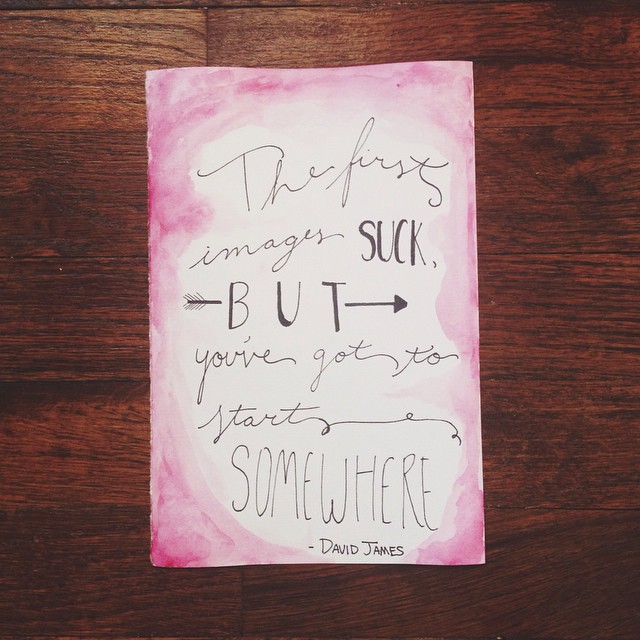 The first
images SUCK,
BUT
you've got to
start
SOMEWHERE
- DAVID JAMES